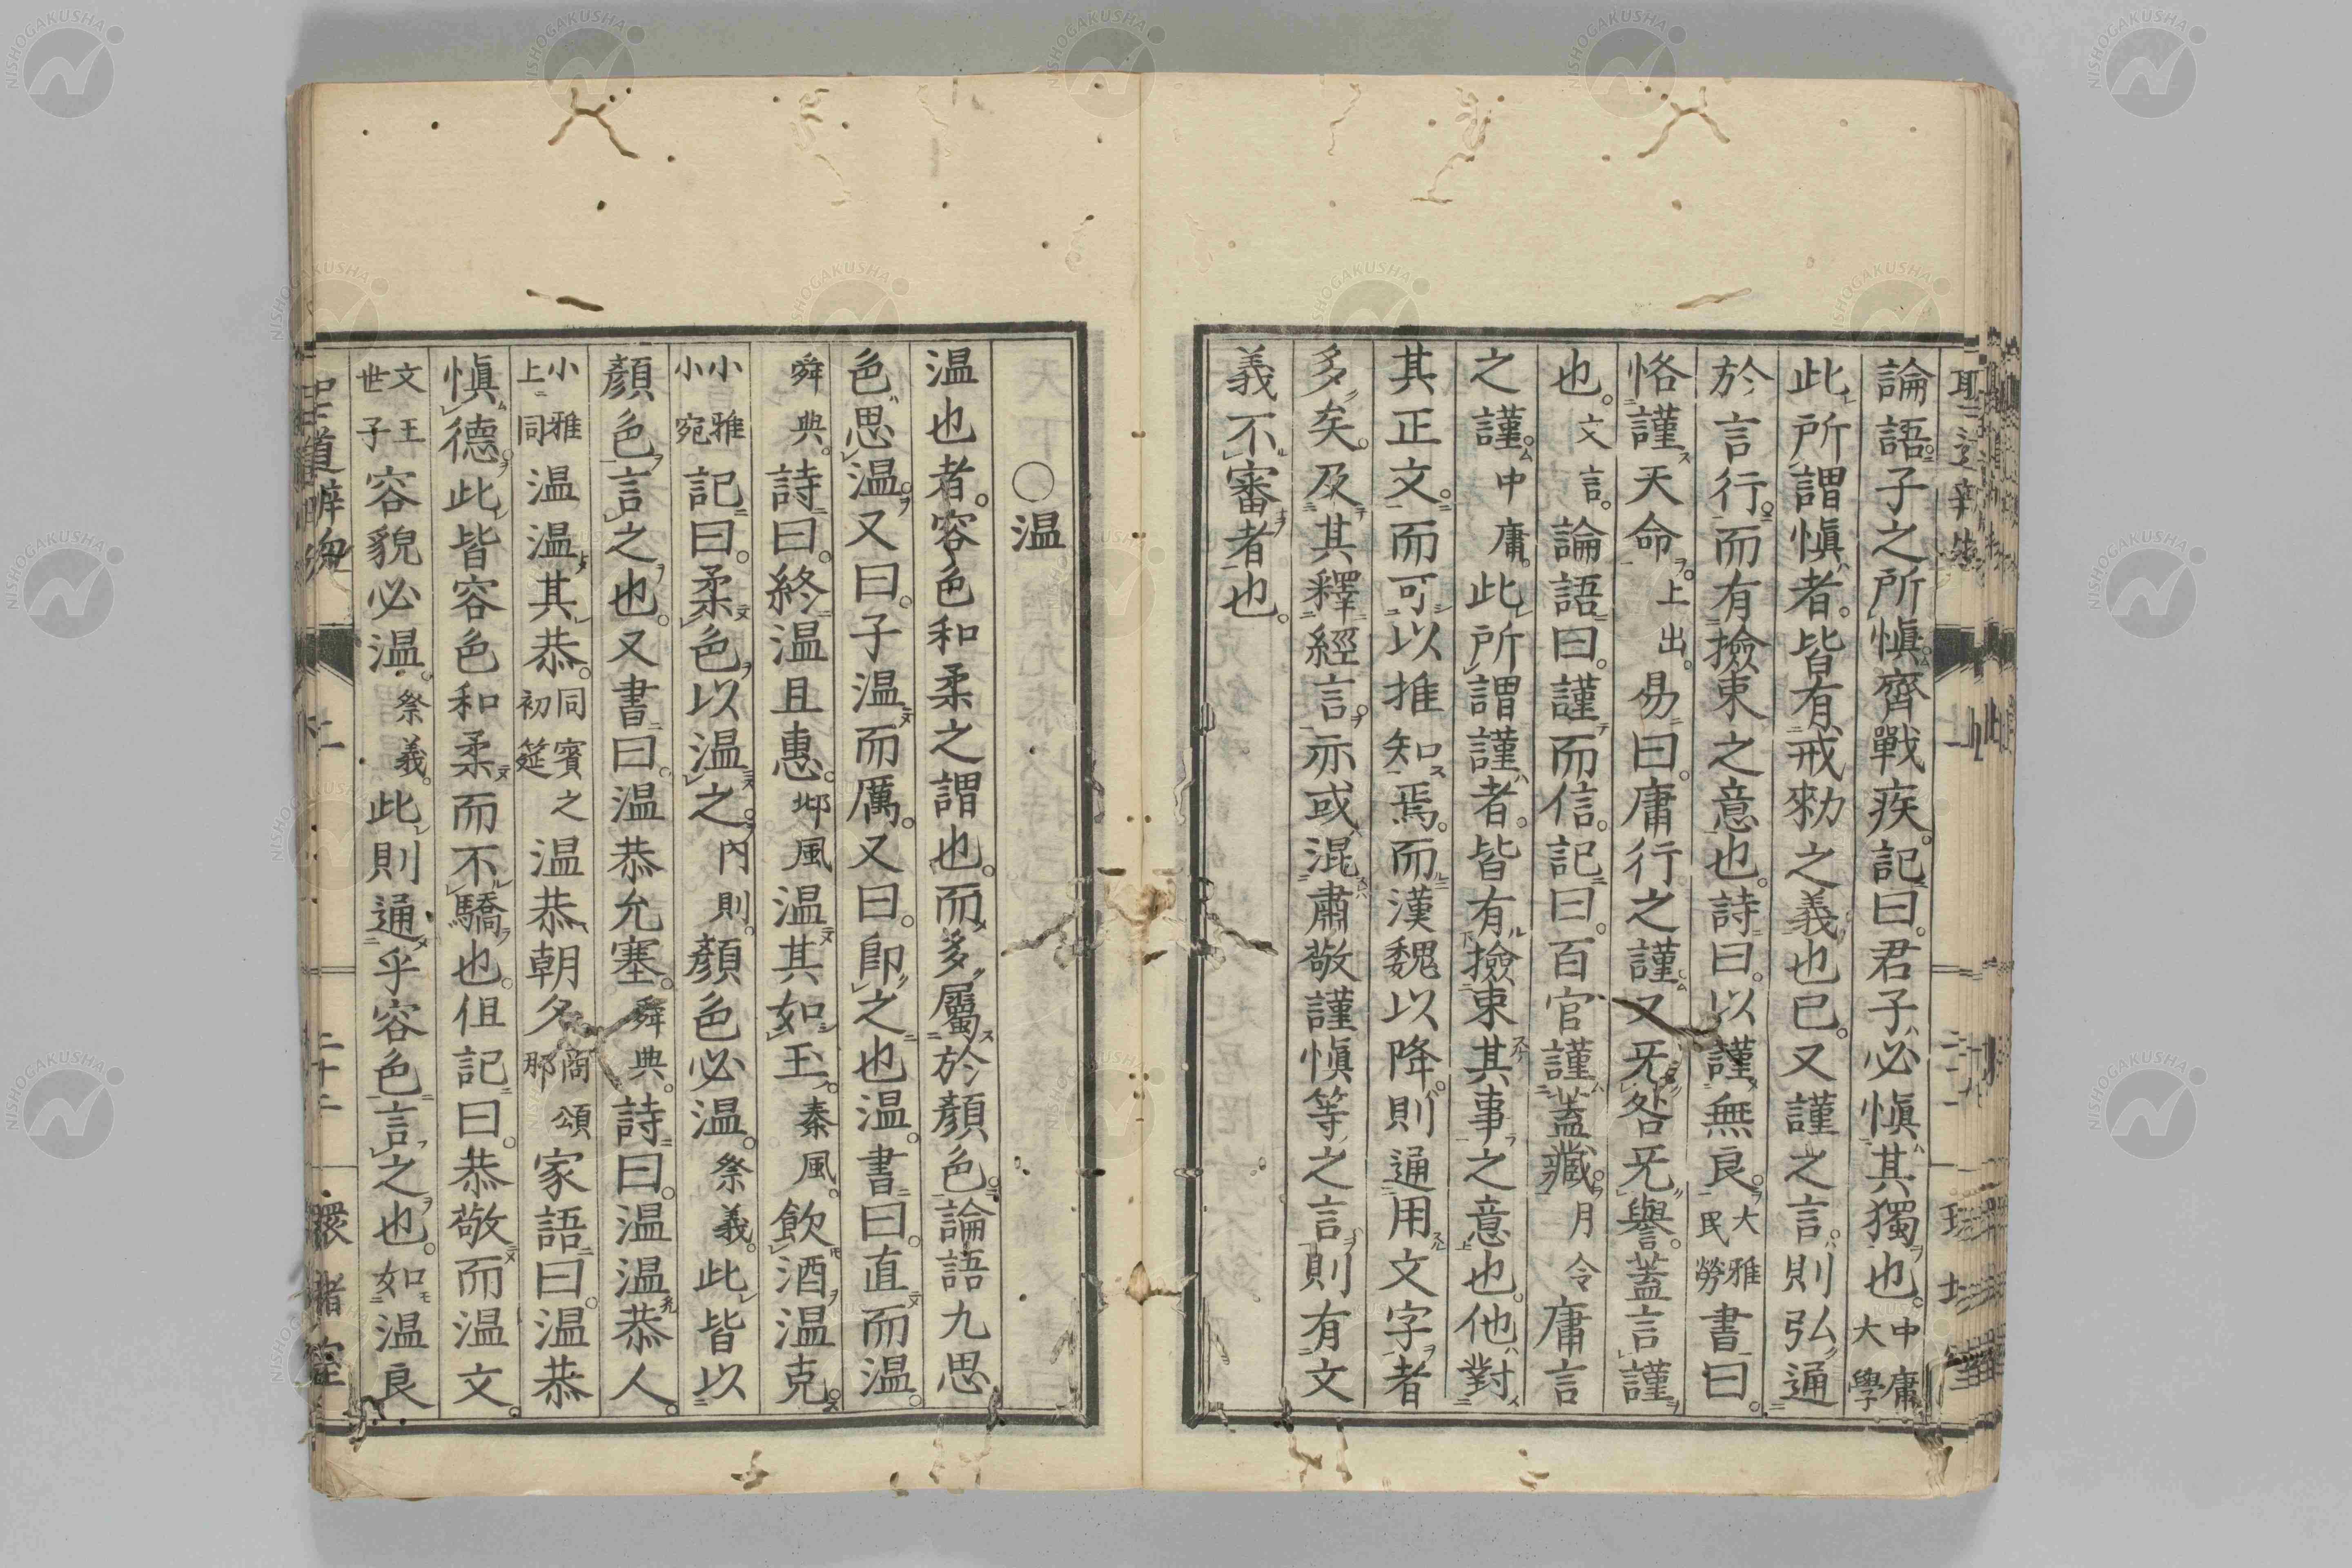 論語。子之所愼。齊戰疾。記曰。君子必愼其獨也。中庸大學
此所謂愼者。皆有戒勑之義也已。又謹之言。則弘通
於言行。而有撿束之意也。詩曰。以謹無良。大雅民勞書曰。
恪謹天命。上出。易曰。庸行之謹。又旡咎旡譽。蓋言謹
也。文言。論語曰。謹而信。記曰。百官謹蓋藏。月令庸言
之謹。中庸。此所謂謹者。皆有撿束其事之意也。他對
其正文。而可以推知焉。而漢魏以降。則通用文字者
多矣。及其釋經言。亦或混肅敬謹愼等之言。則有文
義不審者也。
○温
温也者。容色和柔之謂也。而多屬於顏色。論語九思
色思温。又曰。子温而厲。又曰。卽之也温。書曰。直而温。
舜典。詩曰。終温且惠。邶風温其如玉。秦風。飲酒温克。
小雅小宛。記曰。柔色以温之。内則。顏色必温。祭義。此皆以
顏色言之也。又書曰。温恭允塞。舜典。詩曰。温温恭人。
小雅上同温温其恭。同賓之初筵温恭朝夕商頌那家語曰。温恭
愼德。此皆容色和柔而不驕也。但記曰。恭敬而温文。
文王世子容貌必温。祭義。此則通乎容色言之也。如温良
聖道辨物 上 二十二 環堵室